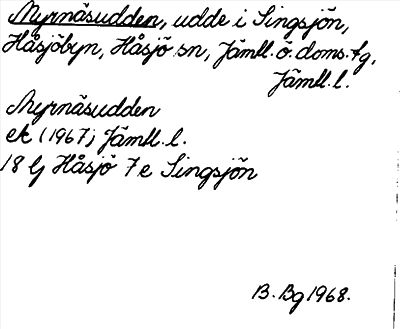 Myrnäsudden, udde i Singsjön,
Håsjöbyn, Håsjö sn, Jämtl. ö. doms. tg,
Jämtl. l.
Myrnäsudden
ek (1967) Jämtl. l.
18 G Håsjö 7 e Singsjön
B. Bg 1968.